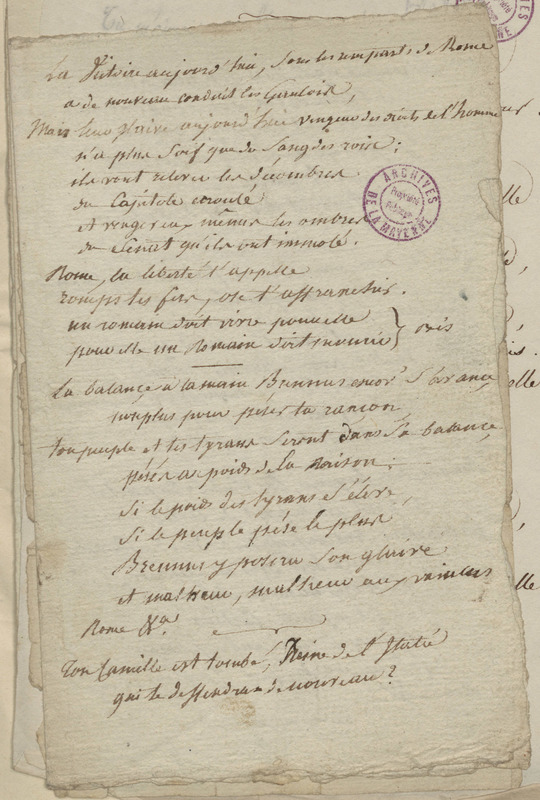 La Victoire aujourd'hui, sous les remparts de Rome
a de nouveau conduit les Gaulois,
Mais leur glaive aujourd'hui vengeur des droits de l'homme
n'a plus soif que du sang des rois;
ils vont relever les décombres
du Capitole écroulé
et venger eux mêmes les ombres
du Sénat qu'ils ont immolé.
Rome, la liberté t'appelle
romps tes fers, ose t'affranchir.
un romain doit vivre pour elle
pour elle un Romain doit mourir } bis
La balance à la main Brennus encor s'avance
non plus pour péser ta rançon,
ton peuple et tes tyrans seront dans sa balance
pésés au poids de la Raison;
si le poids des tyrans s'éleve,
si le peuple pése le plus
Brennus y posera son glaive
et malheur, malheur aux vaincus
Rome &a.
Ton Camille est tombé, Reine de l'Italie
qui te deffendra de nouveau?
ARCHIVES DE LA MAYENNE
Propriété Publique